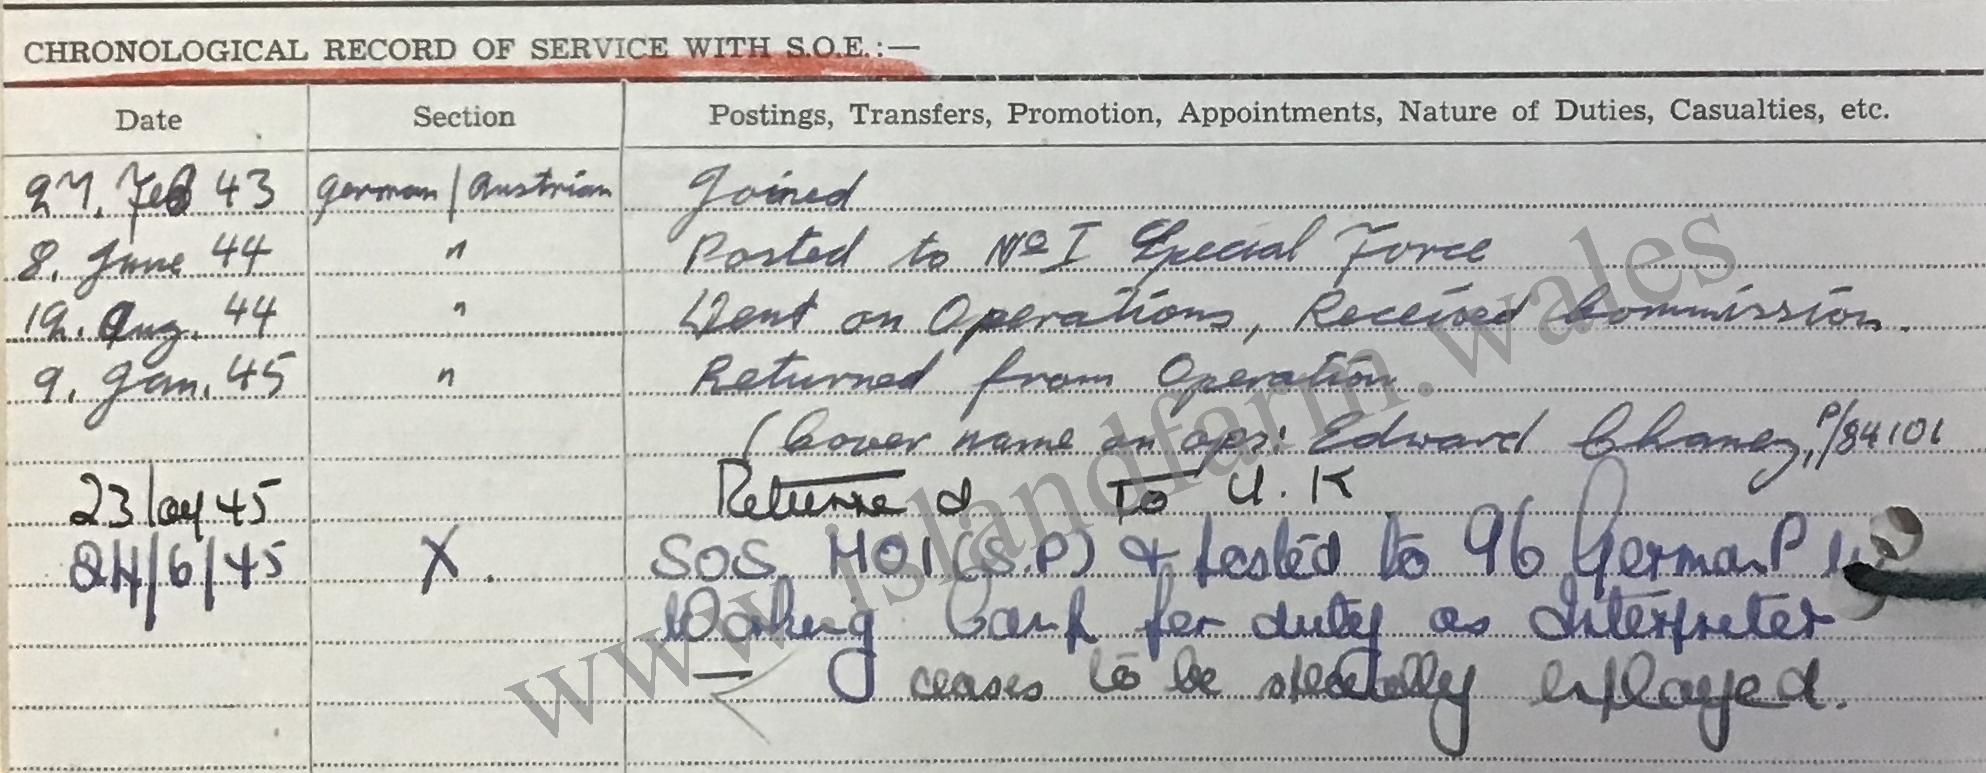 CHRONOLOGICAL RECORD OF SERVICE WITH S.O.E.:—
Date Section Postings, Transfers, Promotion, Appointments, Nature of Duties, Casualties, etc.
27. Feb 43 German/Austrian Joined
8. June 44 " Posted to No I Special Force
12. Aug. 44 " Went on Operations, Received Commission.
9. Jan. 45 " Returned from Operation
(Cover name on ops: Edward Chaney, P/84101
23 45 Returned to U.K
24/6/45 X. SOS MO1(S.P) & posted to 96 German P
Working Camp for duty as Interpreter
— ceases to be specially employed.
www.islandfarm.wales